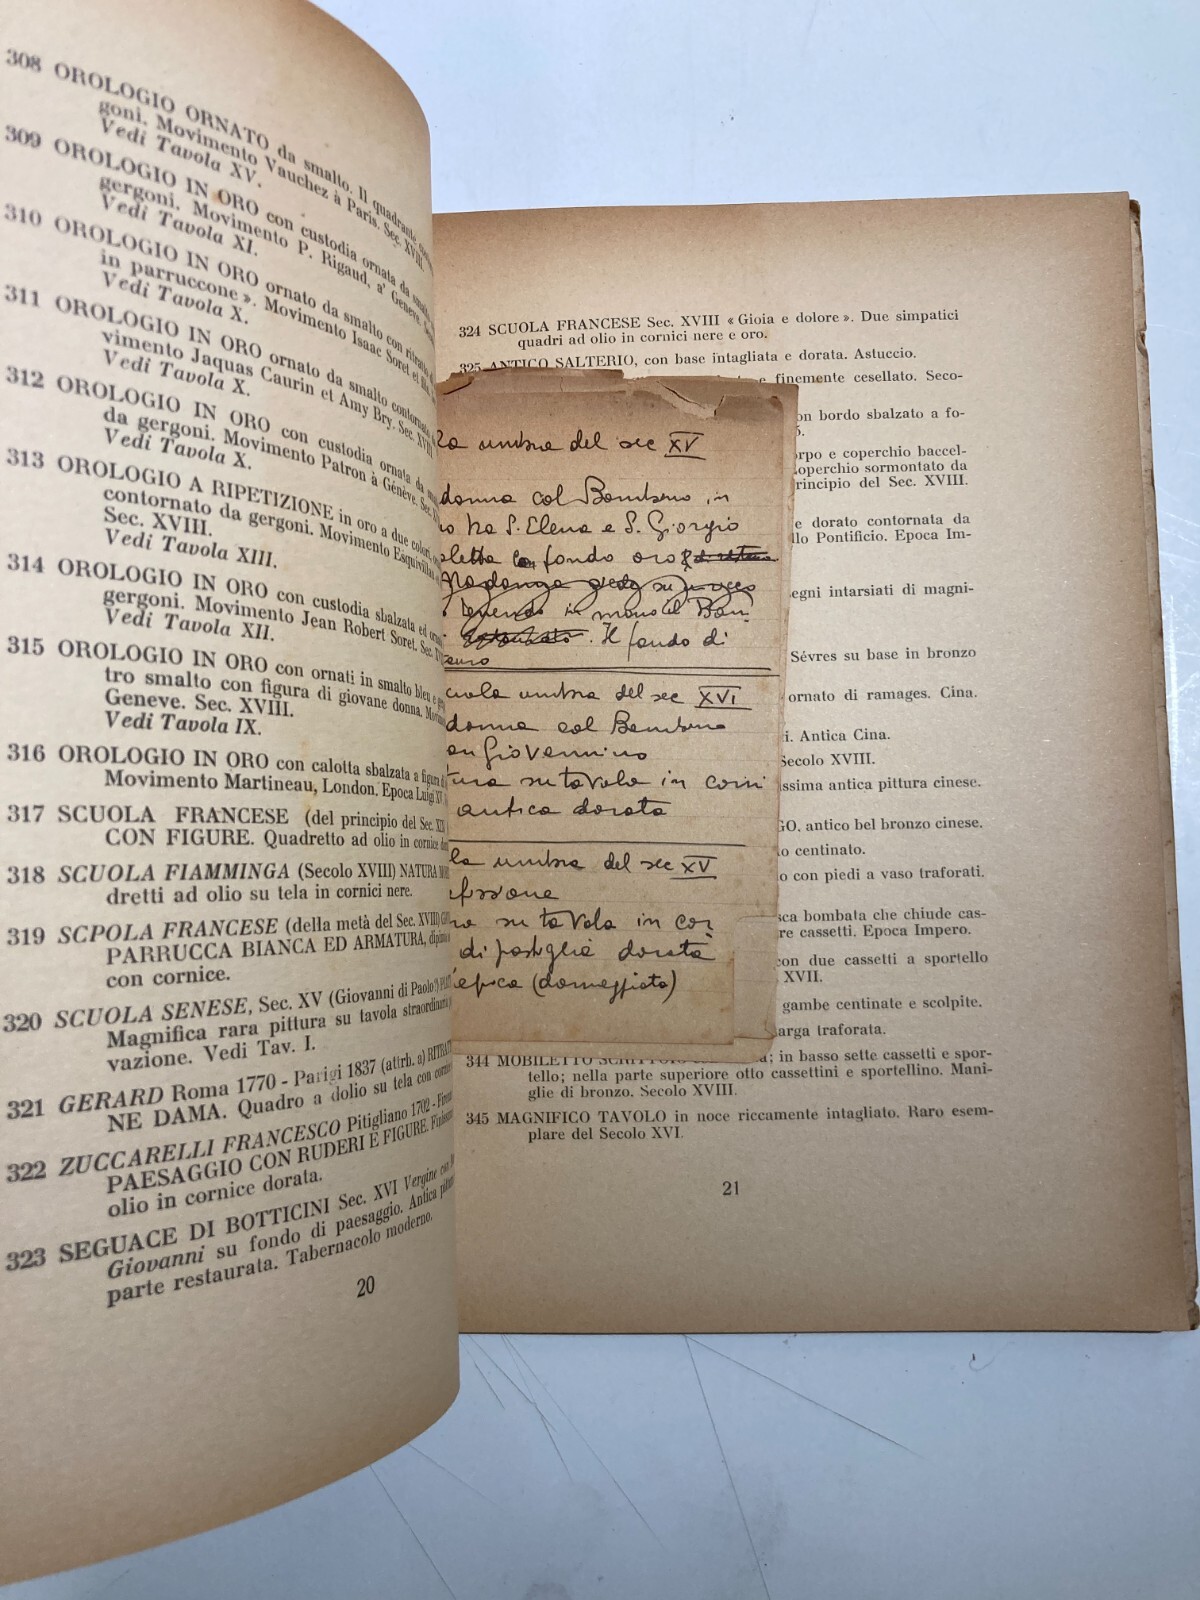 308 OROLOGIO ORNATO da smalto. Il quadrante
goni. Movimento Vauchez à Paris. Sec. XVIII.
Vedi Tavola XV.
309 OROLOGIO IN ORO con custodia ornata da
gergoni. Movimento P. Rigaud, a' Geneve.
Vedi Tavola XI.
310 OROLOGIO IN ORO ornato da smalto con ritratto
in parruccone ». Movimento Isaac Soret et
Vedi Tavola X.
311 OROLOGIO IN ORO ornato da smalto contornato
vimento Jaquas Caurin et Amy Bry. Sec. XVIII
Vedi Tavola X.
312 OROLOGIO IN ORO con custodia ornata da
da gergoni. Movimento Patron à Génève. Sec.
Vedi Tavola X.
313 OROLOGIO A RIPETIZIONE in oro a due colori,
contornato da gergoni. Movimento Esquivillon
Sec. XVIII.
Vedi Tavola XIII.
314 OROLOGIO IN ORO con custodia sbalzata ed
gergoni. Movimento Jean Robert Soret. Sec.
Vedi Tavola XII.
315 OROLOGIO IN ORO con ornati in smalto bleu e
tro smalto con figura di giovane donna.
Geneve. Sec. XVIII.
Vedi Tavola IX.
316 OROLOGIO IN ORO con calotta sbalzata a figura
Movimento Martineau, London. Epoca Luigi XV
317 SCUOLA FRANCESE (del principio del Sec. XIX
CON FIGURE. Quadretto ad olio in cornice
318 SCUOLA FIAMMINGA (Secolo XVIII) NATURA
dretti ad olio su tela in cornici nere.
319 SCPOLA FRANCESE (della metà del Sec. XVIII)
PARRUCCA BIANCA ED ARMATURA,
con cornice.
320 SCUOLA SENESE, Sec. XV (Giovanni di Paolo?)
Magnifica rara pittura su tavola
vazione. Vedi Tav. I.
321 GERARD Roma 1770 - Parigi 1837 (attrb. a)
NE DAMA. Quadro a dolio su tela con
322 ZUCCARELLI FRANCESCO Pitigliano 1702 -
PAESAGGIO CON RUDERI E FIGURE.
olio in cornice dorata.
323 SEGUACE DI BOTTICINI Sec. XVI Vergine con
Giovanni su fondo di paesaggio. Antica
parte restaurata. Tabernacolo moderno.
20
324 SCUOLA FRANCESE Sec. XVIII « Gioia e dolore ». Due simpatici
quadri ad olio in cornici nere e oro.
325 ANTICO SALTERIO, con base intagliata e dorata. Astuccio.
e finemente cesellato. Seco-
on bordo sbalzato a fo-
orpo e coperchio baccel-
operchio sormontato da
rincipio del Sec. XVIII.
e dorato contornata da
llo Pontificio. Epoca Im-
egni intarsiati di magni-
Sévres su base in bronzo
ornato di ramages. Cina.
i. Antica Cina.
Secolo XVIII.
issima antica pittura cinese.
GO. antico bel bronzo cinese.
o centinato.
o con piedi a vaso traforati.
sca bombata che chiude cas-
re cassetti. Epoca Impero.
con due cassetti a sportello
XVII.
gambe centinate e scolpite.
arga traforata.
344 MOBILETTO SCRITTOIO
; in basso sette cassetti e spor-
tello; nella parte superiore otto cassettini e sportellino. Mani-
glie di bronzo. Secolo XVIII.
345 MAGNIFICO TAVOLO in noce riccamente intagliato. Raro esem-
plare del Secolo XVI.
21
la umbra del sec XV
donna col Bambino in
o tra S. Elena e S. Giorgio
oletta fondo oro
Madonna su
tenendo in mano il Bam-
. Il fondo di
scuola umbra del sec XVI
donna col Bambino
an Giovannino
tura su tavola in corni
antica dorata
la umbra del sec XV
fissione
su tavola in cor
di pastiglia dorata
epoca (danneggiata)